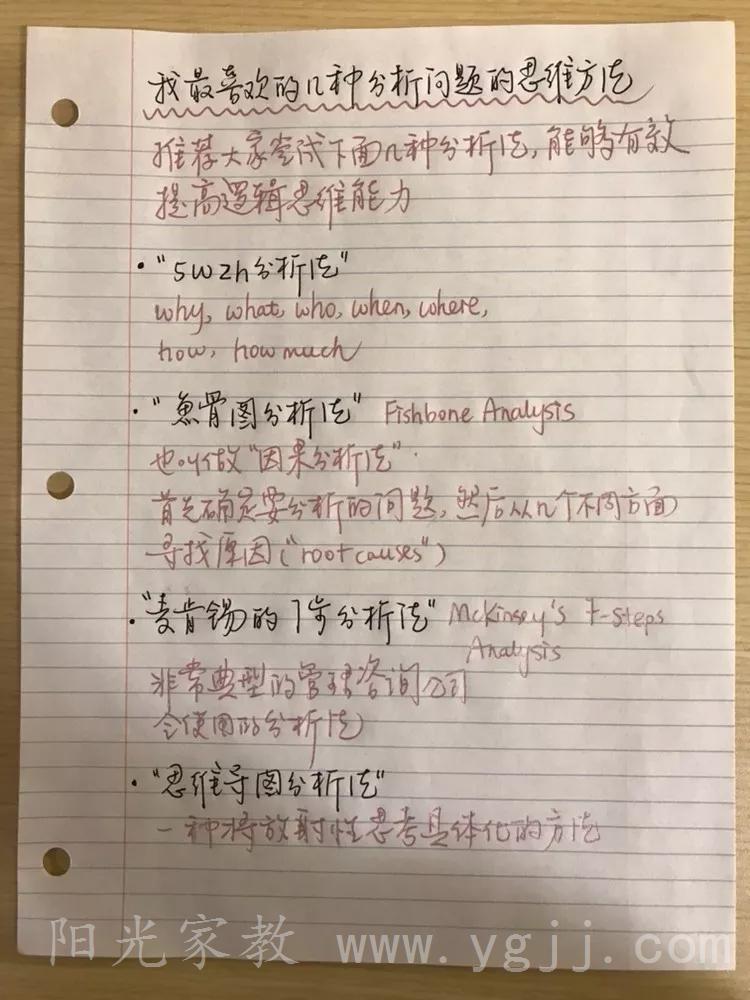 我最喜欢的几种分析问题的思维方法
推荐大家尝试下面几种分析法，能够有效
提高逻辑思维能力
·"5w2h分析法"
why, what, who, when, where,
how, how much
·"鱼骨图分析法" Fishbone Analysis
也叫做"因果分析法".
首先确定要分析的问题，然后从几个不同方面
寻找原因("root causes")
·"麦肯锡的7步分析法" Mckinsey's 7-steps
Analysis
非常典型的管理咨询公司
会使用的分析法
·"思维导图分析法"
一种将放射性思考具体化的方法
阳光家教 www.ygjj.com